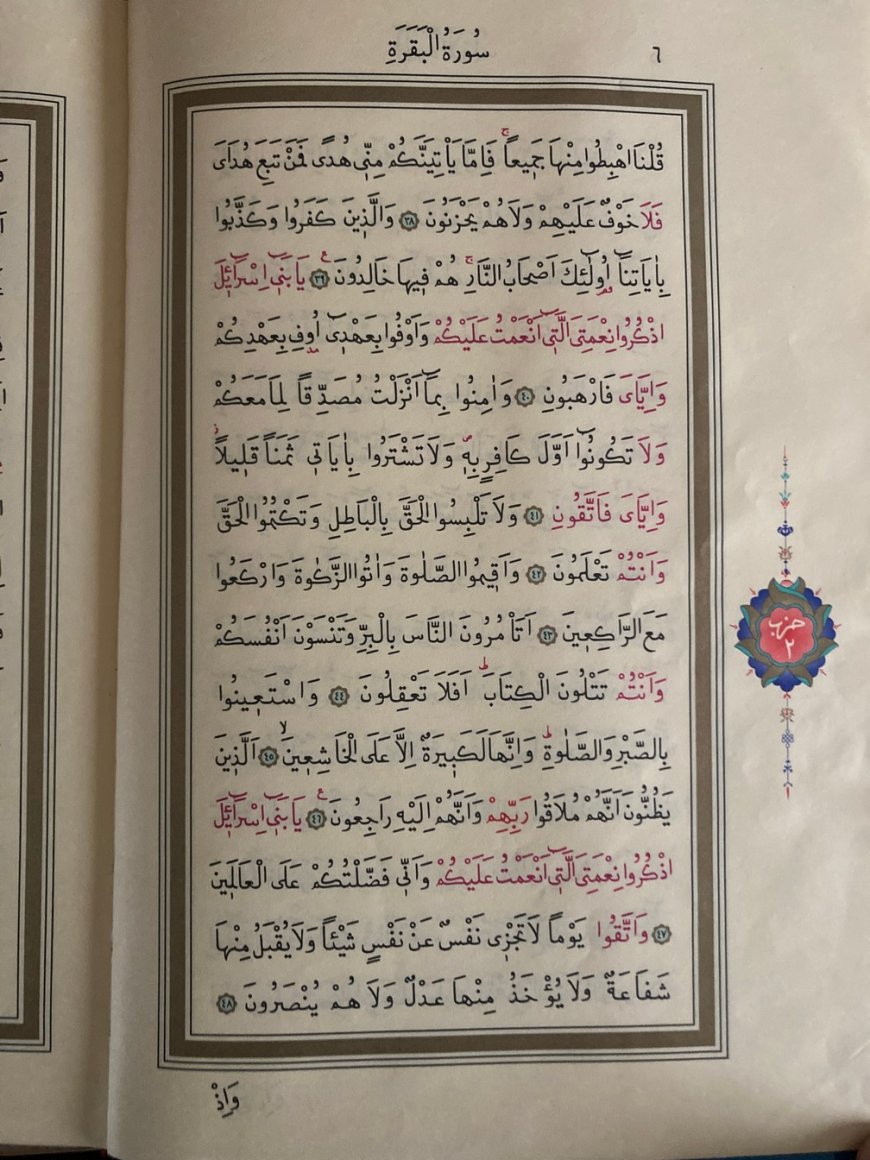 سُورَةُ الْبَقَرَةِ
٦
قُلْنَا اهْبِطُوا مِنْهَا جَمٖيعاًۚ فَاِمَّا يَأْتِيَنَّكُمْ مِنّٖى هُدًى فَمَنْ تَبِعَ هُدَاىَ
فَلَا خَوْفٌ عَلَيْهِمْ وَلَا هُمْ يَحْزَنُونَ ﴿٣٨﴾ وَالَّذٖينَ كَفَرُوا وَكَذَّبُوا
بِاٰيَاتِنَٓا اُولٰٓئِكَ اَصْحَابُ النَّارِۚ هُمْ فٖيهَا خَالِدُونَ ﴿٣٩﴾ ع يَا بَنٖٓى اِسْرَٓائٖلَ
اذْكُرُوا نِعْمَتِىَ الَّتٖٓى اَنْعَمْتُ عَلَيْكُمْ وَاَوْفُوا بِعَهْدٖٓى اُوفِ بِعَهْدِكُمْ
وَاِيَّاىَ فَارْهَبُونِ ﴿٤٠﴾ وَاٰمِنُوا بِمَٓا اَنْزَلْتُ مُصَدِّقاً لِمَا مَعَكُمْ
وَلَا تَكُونُٓوا اَوَّلَ كَافِرٍ بِهٖۖ وَلَا تَشْتَرُوا بِاٰيَاتٖى ثَمَناً قَلٖيلاًۘ
وَاِيَّاىَ فَاتَّقُونِ ﴿٤١﴾ وَلَا تَلْبِسُوا الْحَقَّ بِالْبَاطِلِ وَتَكْتُمُوا الْحَقَّ
وَاَنْتُمْ تَعْلَمُونَ ﴿٤٢﴾ وَاَقٖيمُوا الصَّلٰوةَ وَاٰتُوا الزَّكٰوةَ وَارْكَعُوا
مَعَ الرَّاكِعٖينَ ﴿٤٣﴾ اَتَأْمُرُونَ النَّاسَ بِالْبِرِّ وَتَنْسَوْنَ اَنْفُسَكُمْ
وَاَنْتُمْ تَتْلُونَ الْكِتَابَؕ اَفَلَا تَعْقِلُونَ ﴿٤٤﴾ وَاسْتَعٖينُوا
بِالصَّبْرِ وَالصَّلٰوةِؕ وَاِنَّهَا لَكَبٖيرَةٌ اِلَّا عَلَى الْخَاشِعٖينَۙ ﴿٤٥﴾ اَلَّذٖينَ
يَظُنُّونَ اَنَّهُمْ مُلَاقُوا رَبِّهِمْ وَاَنَّهُمْ اِلَيْهِ رَاجِعُونَ ﴿٤٦﴾ ع يَا بَنٖٓى اِسْرَٓائٖلَ
اذْكُرُوا نِعْمَتِىَ الَّتٖٓى اَنْعَمْتُ عَلَيْكُمْ وَاَنّٖى فَضَّلْتُكُمْ عَلَى الْعَالَمٖينَ
﴿٤٧﴾ وَاتَّقُوا يَوْماً لَا تَجْزٖى نَفْسٌ عَنْ نَفْسٍ شَيْـٔاً وَلَا يُقْبَلُ مِنْهَا
شَفَاعَةٌ وَلَا يُؤْخَذُ مِنْهَا عَدْلٌ وَلَا هُمْ يُنْصَرُونَ ﴿٤٨﴾
وَاِذْ
حزب
٢